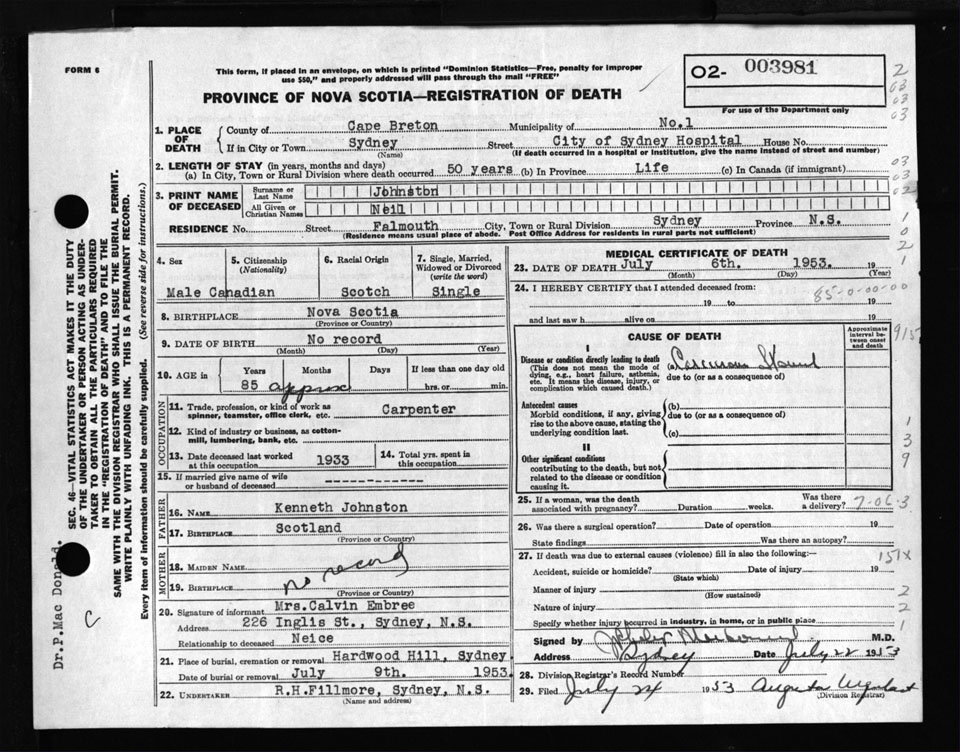 FORM 6
This form, if placed in an envelope, on which is printed "Dominion Statistics—Free, penalty for improper
use $50," and properly addressed will pass through the mail "FREE"
O2- 003981
PROVINCE OF NOVA SCOTIA—REGISTRATION OF DEATH
For use of the Department only
2
03
03
03
1. PLACE OF DEATH
County of Cape Breton Municipality of No.1
If in City or Town Sydney Street City of Sydney Hospital House No.
(Name) (If death occurred in a hospital or institution, give the name instead of street and number)
2. LENGTH OF STAY (in years, months and days)
(a) In City, Town or Rural Division where death occurred 50 years (b) In Province Life (c) In Canada (if immigrant)
03
03
3. PRINT NAME OF DECEASED
Surname or Last Name Johnston
02
All Given or Christian Names Neil
RESIDENCE No. Street Falmouth City, Town or Rural Division Sydney Province N.S.
(Residence means usual place of abode. Post Office Address for residents in rural parts not sufficient)
1
0
2
1
4. Sex
5. Citizenship (Nationality)
6. Racial Origin
7. Single, Married, Widowed or Divorced (write the word)
Male Canadian Scotch Single
8. BIRTHPLACE Nova Scotia
(Province or Country)
9. DATE OF BIRTH No record
(Month) (Day) (Year)
10. AGE in Years Months Days If less than one day old
85 approx hrs. or min.
OCCUPATION
11. Trade, profession, or kind of work as spinner, teamster, office clerk, etc. Carpenter
12. Kind of industry or business, as cotton-mill, lumbering, bank, etc.
13. Date deceased last worked at this occupation 1933
14. Total yrs. spent in this occupation
15. If married give name of wife or husband of deceased
FATHER
16. NAME Kenneth Johnston
17. BIRTHPLACE Scotland
(Province or Country)
MOTHER
18. MAIDEN NAME
no record
19. BIRTHPLACE
(Province or Country)
20. Signature of informant Mrs.Calvin Embree
Address 226 Inglis St., Sydney, N.S.
Relationship to deceased Neice
21. Place of burial, cremation or removal Hardwood Hill, Sydney.
Date of burial or removal July 9th. 1953.
22. UNDERTAKER R.H.Fillmore, Sydney, N.S.
(Name and address)
MEDICAL CERTIFICATE OF DEATH
23. DATE OF DEATH July 6th. 1953. 19
(Month) (Day) (Year)
24. I HEREBY CERTIFY that I attended deceased from:
85-0-00-00
19 to 19
and last saw h alive on 19
CAUSE OF DEATH
Approximate interval between onset and death
I
Disease or condition directly leading to death
(This does not mean the mode of dying, e.g., heart failure, asthenia, etc. It means the disease, injury, or complication which caused death.)
(a)
due to (or as a consequence of)
Antecedent causes
Morbid conditions, if any, giving rise to the above cause, stating the underlying condition last.
(b)
due to (or as a consequence of)
(c)
II
Other significant conditions
contributing to the death, but not related to the disease or condition causing it.
1
3
9
25. If a woman, was the death associated with pregnancy? Duration weeks. Was there a delivery?
7-06-3
26. Was there a surgical operation? Date of operation 19
State findings Was there an autopsy?
27. If death was due to external causes (violence) fill in also the following:—
151X
Accident, suicide or homicide? Date of injury 19
(State which)
Manner of injury 2
(How sustained)
Nature of injury 2
Specify whether injury occurred in industry, in home, or in public place 1
Signed by M.D.
Address Sydney Date July 22 1953
28. Division Registrar's Record Number
29. Filed July 24 1953 Augusta
(Division Registrar)
SEC. 46—VITAL STATISTICS ACT MAKES IT THE DUTY
OF THE UNDERTAKER OR PERSON ACTING AS UNDER-
TAKER TO OBTAIN ALL THE PARTICULARS REQUIRED
IN THE "REGISTRATION OF DEATH" AND TO FILE THE
SAME WITH THE DIVISION REGISTRAR WHO SHALL ISSUE THE BURIAL PERMIT.
WRITE PLAINLY WITH UNFADING INK. THIS IS A PERMANENT RECORD.
Every item of information should be carefully supplied. (See reverse side for instructions.)
Dr.P.Mac Donald.
C